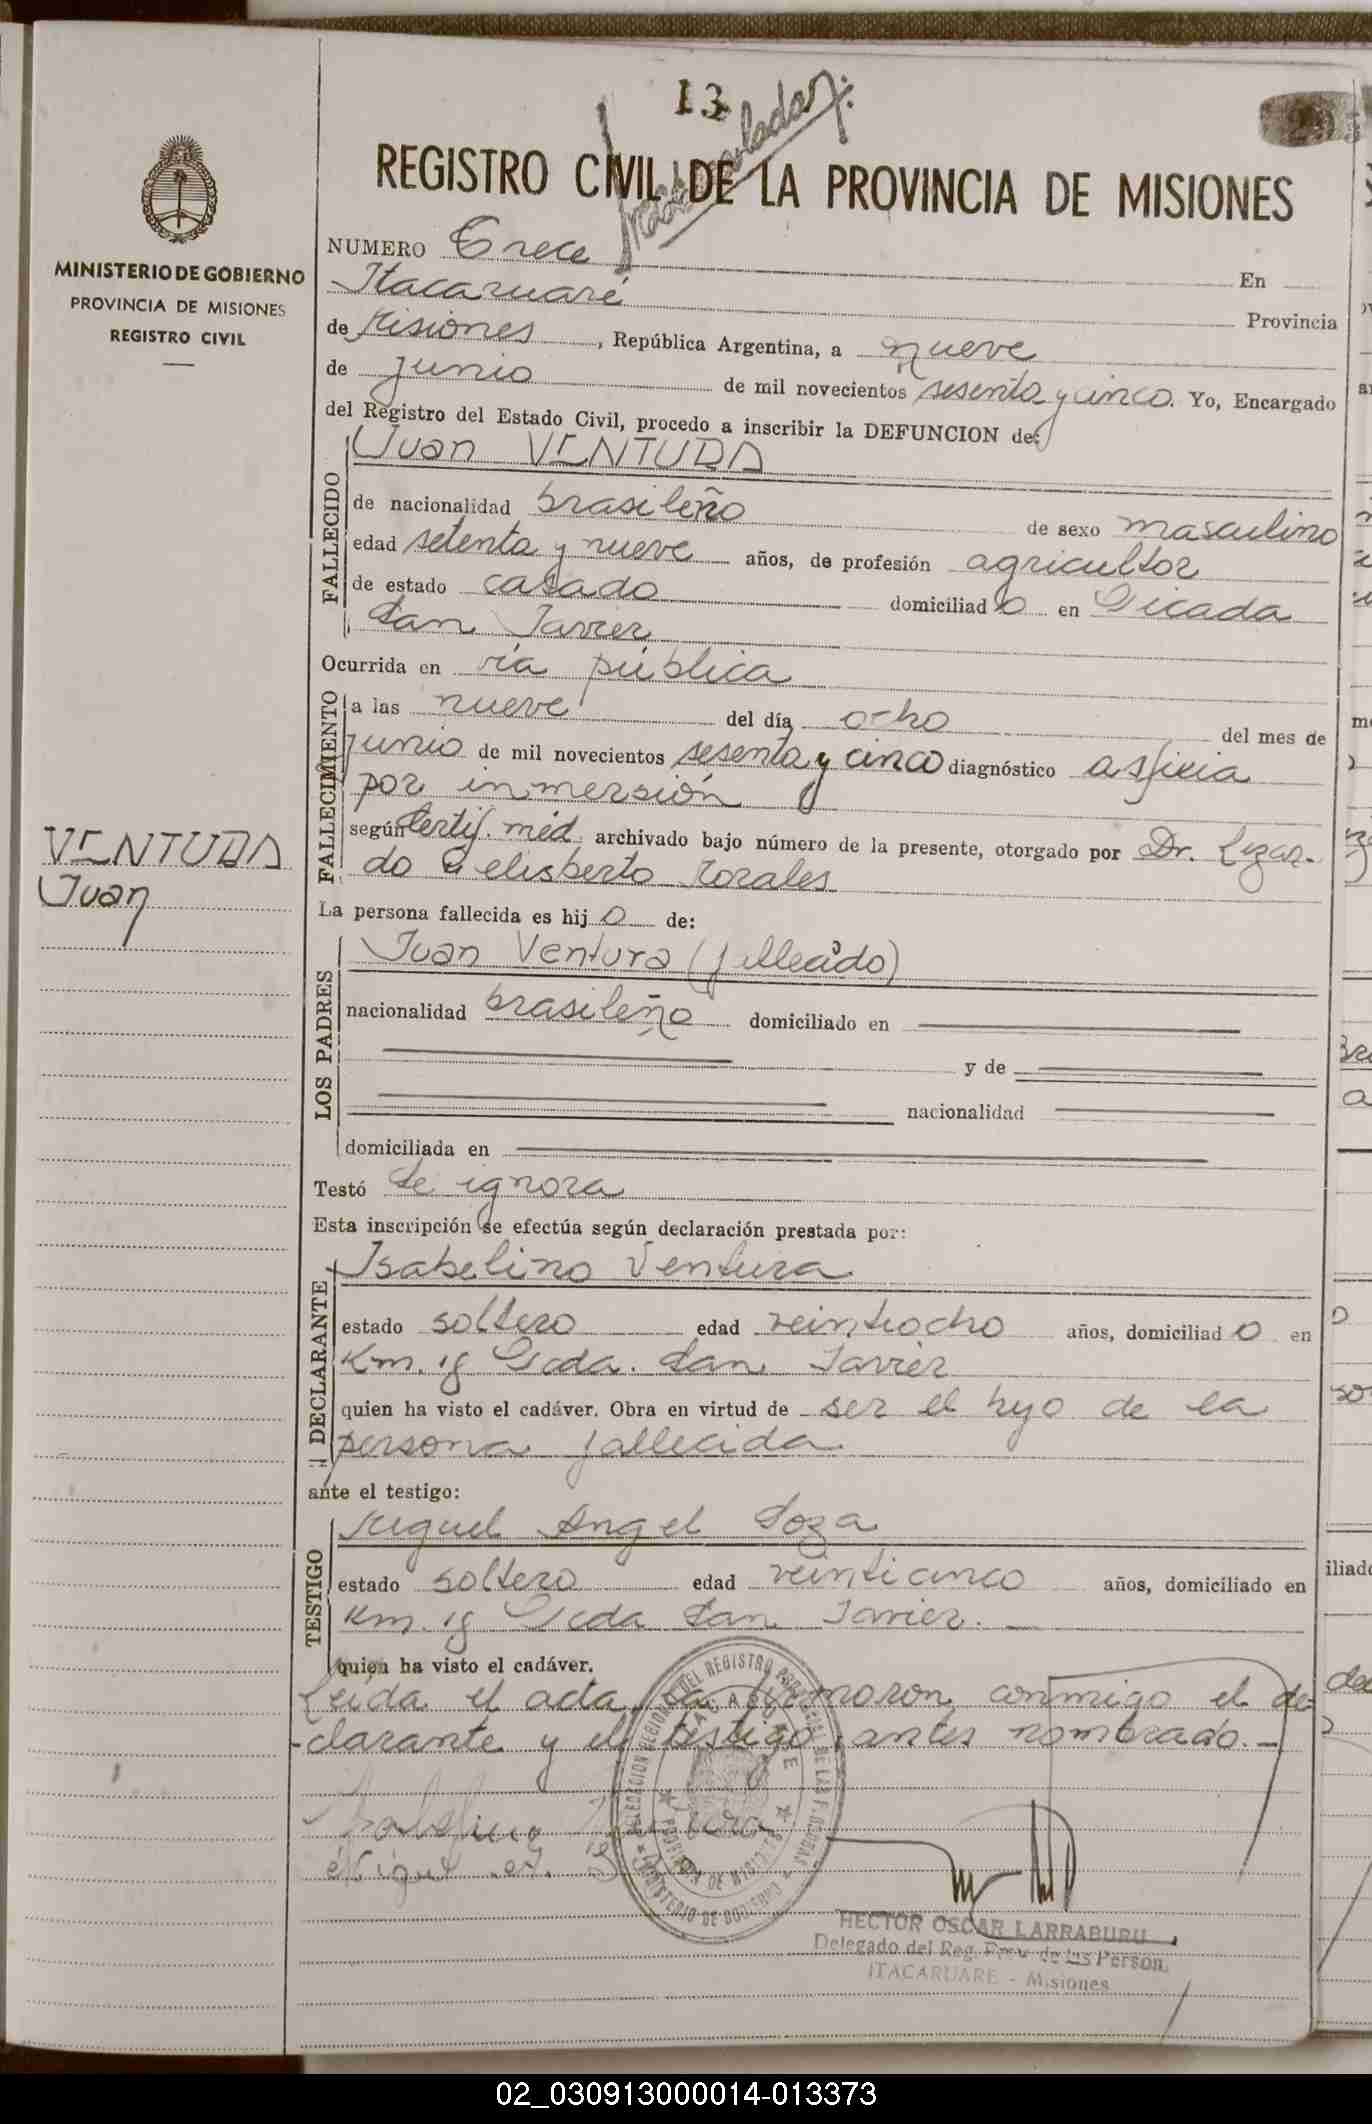 13
REGISTRO CIVIL DE LA PROVINCIA DE MISIONES
MINISTERIO DE GOBIERNO
PROVINCIA DE MISIONES
REGISTRO CIVIL
NUMERO Trece
En
Itacaruaré Provincia
de Misiones, República Argentina, a nueve
de junio de mil novecientos sesenta y cinco. Yo, Encargado
del Registro del Estado Civil, procedo a inscribir la DEFUNCION de:
FALLECIDO
Juan VENTURA
de nacionalidad brasileño de sexo masculino
edad setenta y nueve años, de profesión agricultor
de estado casado domiciliado en Picada
San Javier
Ocurrida en vía pública
FALLECIMIENTO
a las nueve del día ocho del mes de
junio de mil novecientos sesenta y cinco diagnóstico asfixia
por inmersión
según certif. méd. archivado bajo número de la presente, otorgado por Dr. Lizar-
do Gelisberto Rozales
VENTURA
Juan
La persona fallecida es hijo de:
LOS PADRES
Juan Ventura (fallecido)
nacionalidad brasileño domiciliado en
y de
nacionalidad
domiciliada en
Testó se ignora
Esta inscripción se efectúa según declaración prestada por:
DECLARANTE
Isabelino Ventura
estado soltero edad veintiocho años, domiciliado en
Km. 18 Pcda. San Javier
quien ha visto el cadáver. Obra en virtud de ser el hijo de la
persona fallecida
ante el testigo:
TESTIGO
Miguel Angel Soza
estado soltero edad veinticinco años, domiciliado en
Km. 18 Pcda San Javier.
quien ha visto el cadáver.
Leída el acta, la firmaron conmigo el de-
clarante y el testigo antes nombrado.-
HECTOR OSCAR LARRABURU
Delegado del Reg. Prov. de las Person.
ITACARUARE - Misiones
02_030913000014-013373